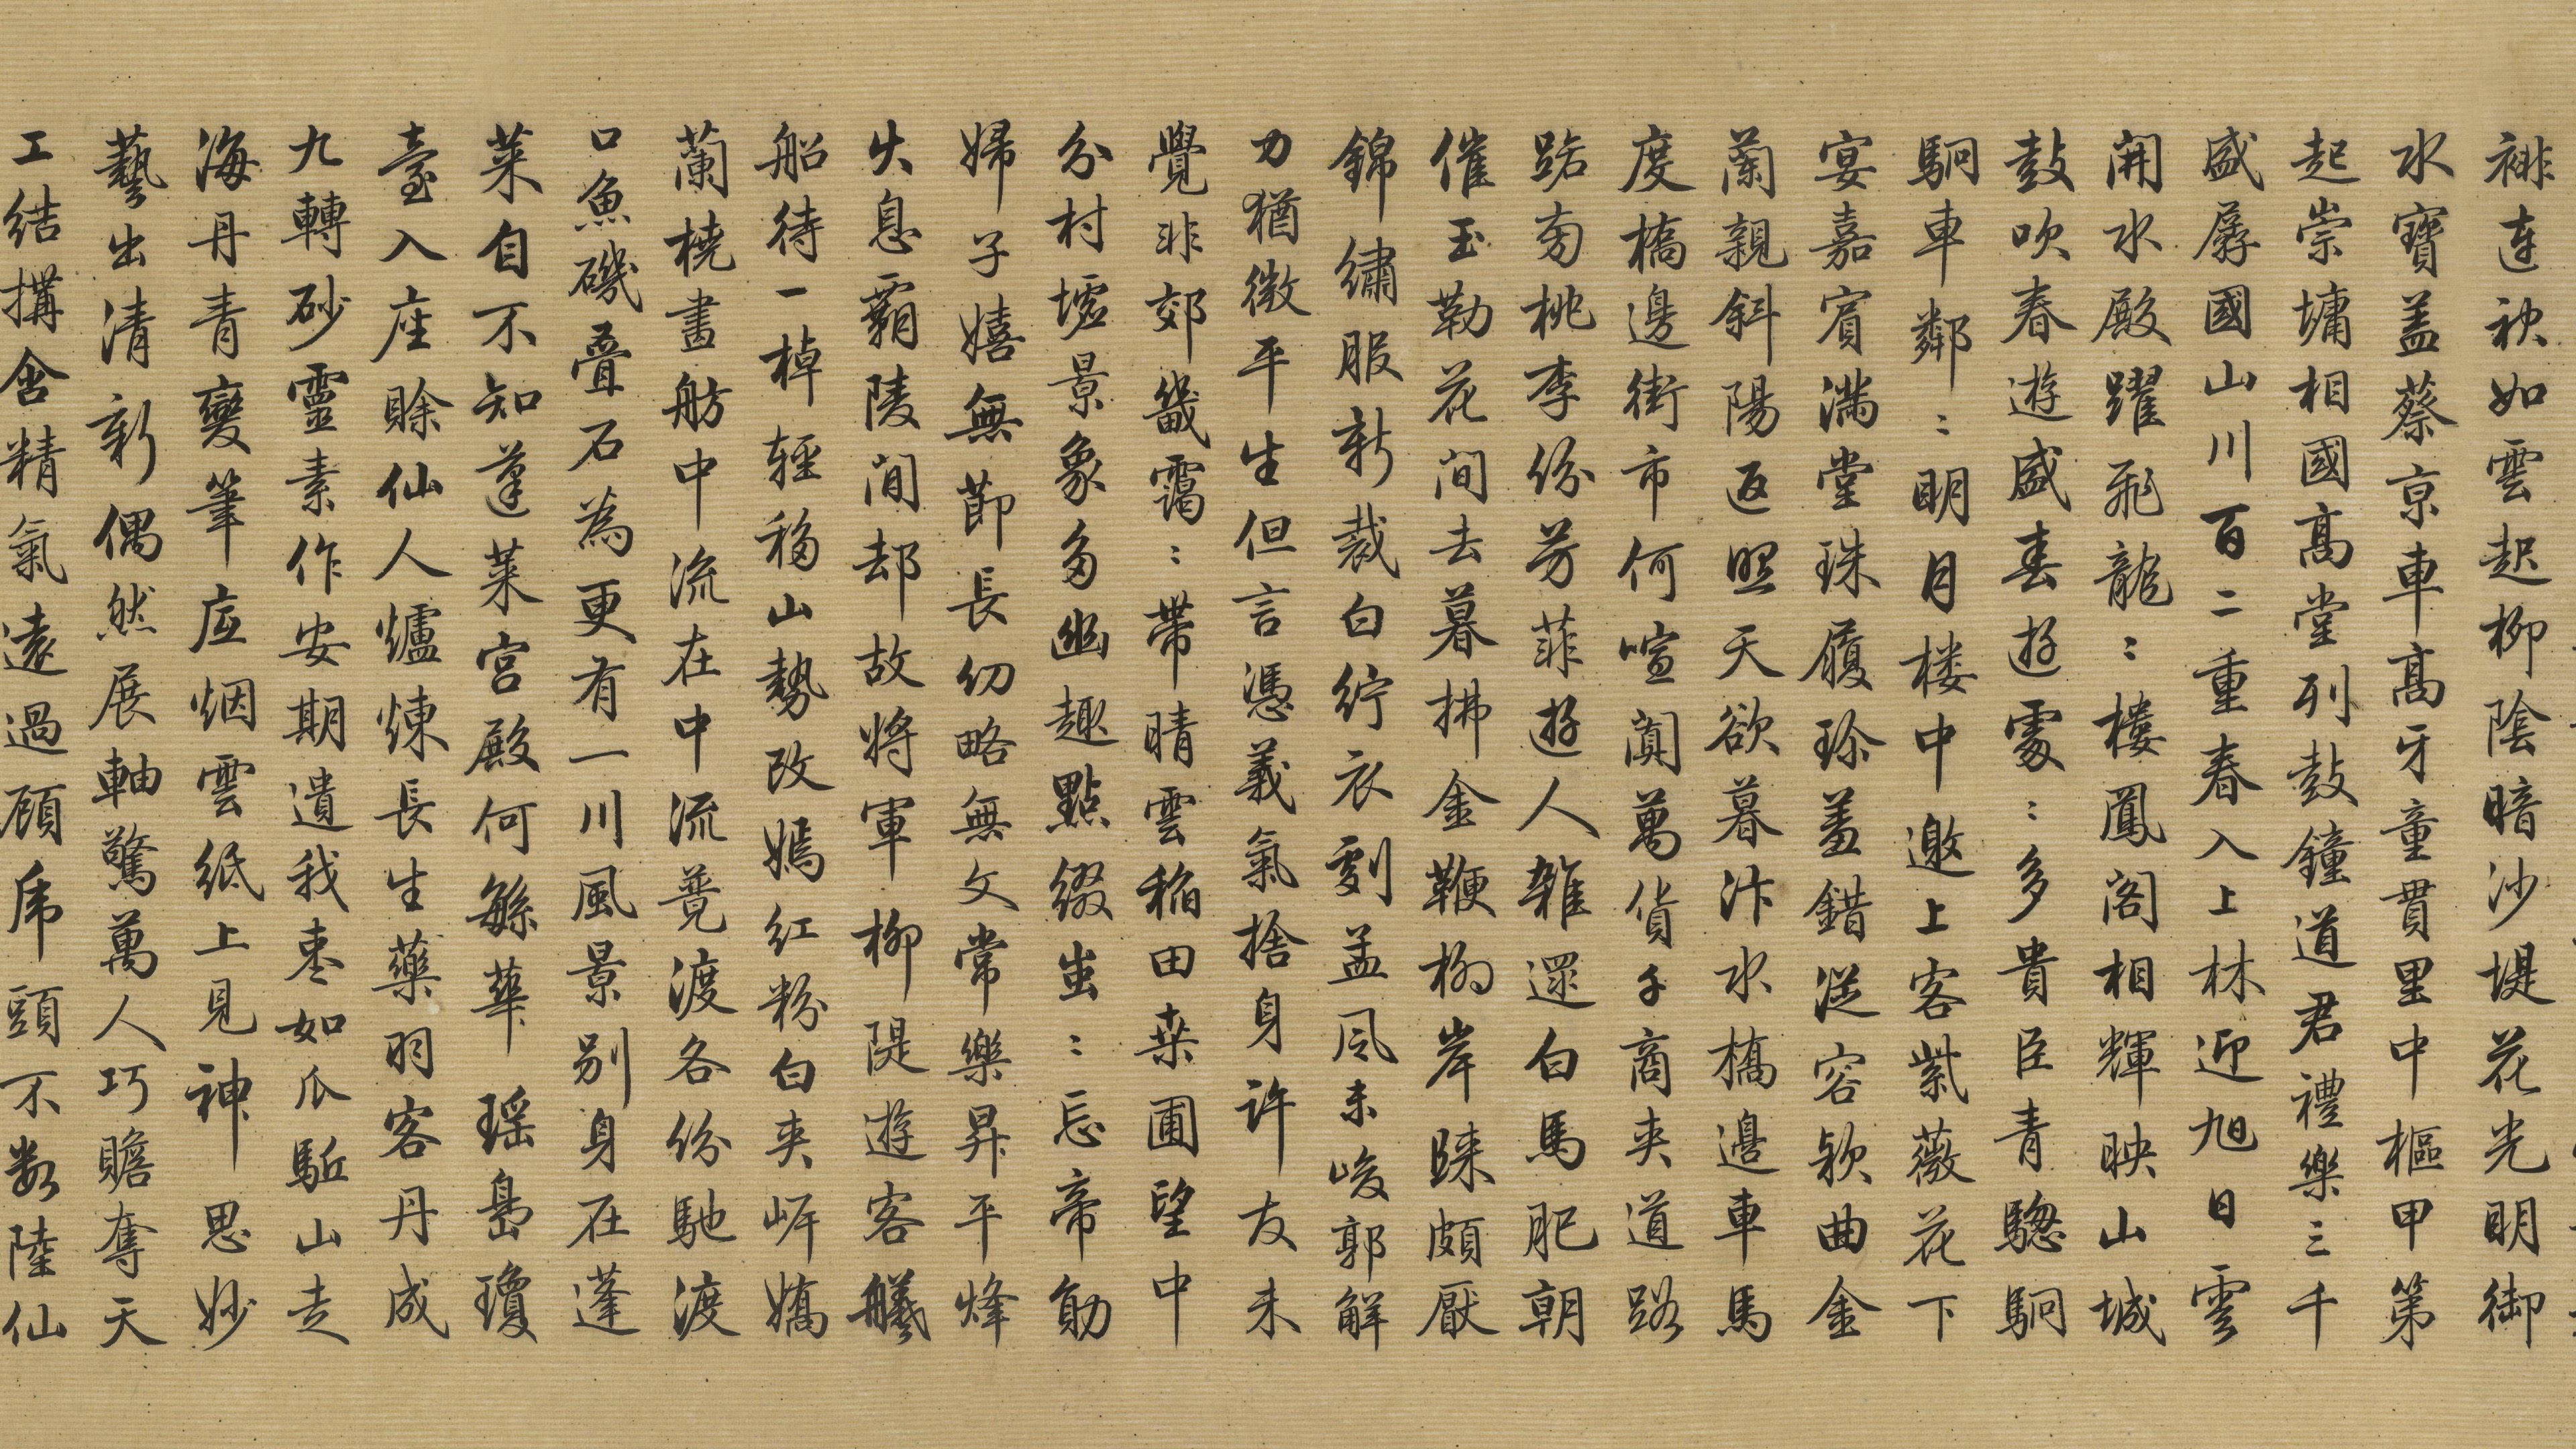 裶連袂如雲起柳陰暗沙堤花光明御
水寶蓋蔡京車高牙童貫里中樞甲第
起崇墉相國高堂列鼓鐘道君禮樂三千
盛孱國山川百二重春入上林迎旭日雲
開水殿躍飛龍：樓鳳閣相輝映山城
鼓吹春遊盛春遊處：多貴臣青驄駉
駉車鄰：明月楼中邀上客紫薇花下
宴嘉賓滿堂珠履珍羞錯從容欵曲金
蘭親斜陽返照天欲暮汴水橋邊車馬
度橋邊街市何喧闐萬貨千商夾道路
路旁桃李份芳菲遊人雜遝白馬肥朝
催玉勒花间去暮拂金鞭柳岸踈頗厭
錦繡服新裁白紵衣劇孟风未峻郭解
力猶微平生但言憑義氣捨身許友未
覺非郊畿靄：帶晴雲稲田桒圃望中
分村墟景象多幽趣點缀蚩：忘帝勛
婦子嬉無節長㓜略無文常樂昇平烽
火息覇陵间却故将軍柳隄遊客艤
船待一棹輕移山勢改嫣红粉白夹岍嬌
蘭橈畫舫中流在中流競渡各份馳渡
口魚磯叠石為更有一川風景别身在蓬
萊自不知蓬萊宮殿何緐華瑶島瓊
臺入座賖仙人爐煉長生藥羽客丹成
九轉砂靈素作安期遺我枣如瓜駈山走
海丹青變筆底烟雲紙上見神思妙
藝出清新偶然展軸驚萬人巧贍奪天
工结搆含精氣遠過顾虎頭不数陸仙